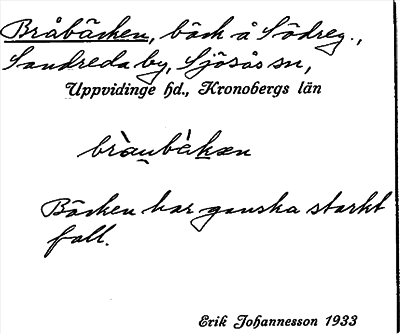 Bråbäcken, bäck å Södreg.,
Sandreda by, Sjösås sn,
Uppvidinge hd., Kronobergs län
bràu̯bàkæn
Bäcken har ganska starkt
fall.
Erik Johannesson 1933